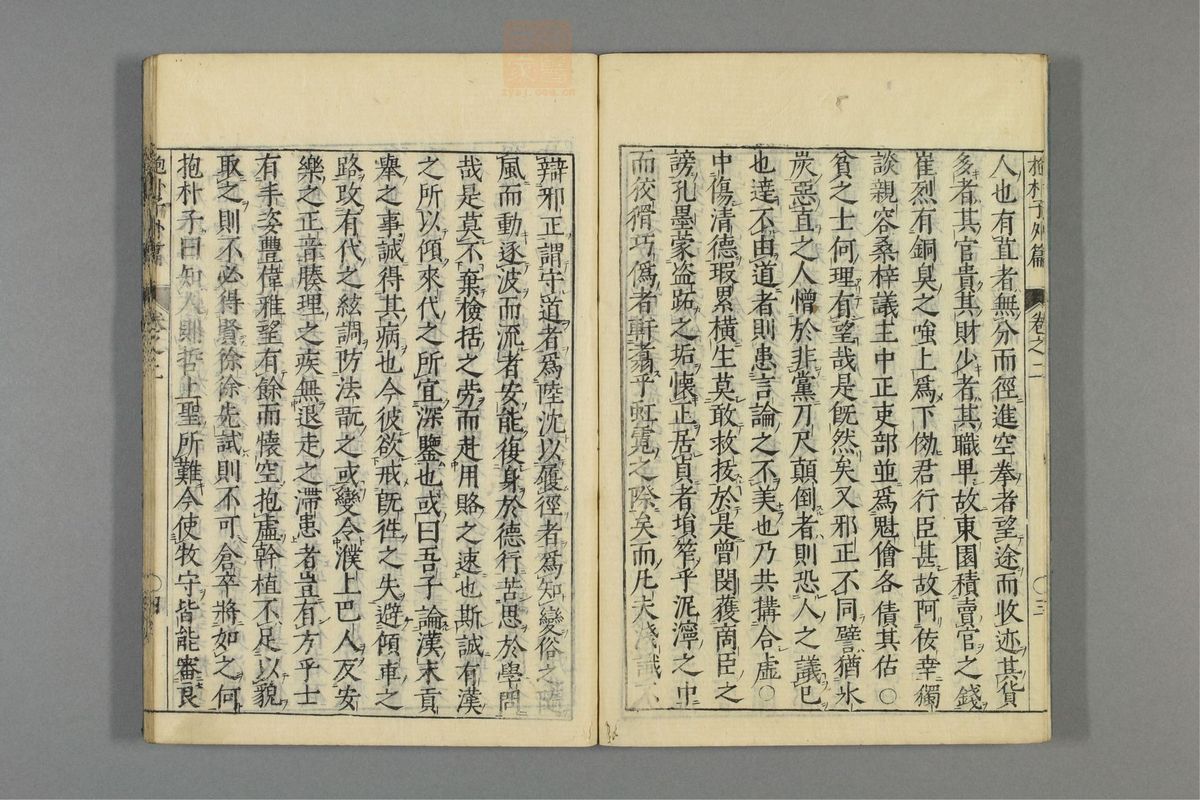 抱朴子外篇 卷之二 〇三
人也有直者無分而徑進空拳者望途而收迹其貨
多者其官貴其財少者其職卑故東園積賣官之錢
崔烈有銅臭之嗤上爲下傚君行臣甚故阿佞幸獨
談親容桑梓議主中正吏部並爲魁儈各債其估〇
貧之士何理有望哉是旣然矣又邪正不同譬猶氷
炭惡直之人憎於非黨刀尺顛倒者則恐人之議己
也達不由道者則患言論之不美也乃共搆合虛〇
中傷清德瑕累橫生莫敢救拔於是曾閔獲商臣之
謗孔墨蒙盗跖之垢懷正居貞者塡笮乎泥濘之中
而狡猾巧僞者軒翥乎虹霓之際矣而凡夫淺識不
辯邪正謂守道者爲陸沈以履徑者爲知變俗之隨
風而動逐波而流者安能復身於德行苦思於學問
哉是莫不棄檢括之勞而赴用賂之速也斯誠有漢
之所以傾來代之所宜深鑒也或曰吾子論漢末貢
舉之事誠得其病也今彼欲戒旣徃之失避傾車之
路改有代之絃調防法翫之或變令濮上巴人反安
樂之正音腠理之疾無退走之滯患者豈有方乎士
有丰姿豐偉雅望有餘而懷空抱虛幹植不足以貌
取之則不必得賢徐徐先試則不可倉卒將如之何
抱朴子曰知人則哲上聖所難今使牧守皆能審良
抱朴子外篇 卷之二 〇四
zysj.com.cn